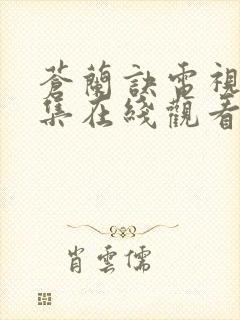 蒼蘭訣電視
集在綫觀看
肖雲儒